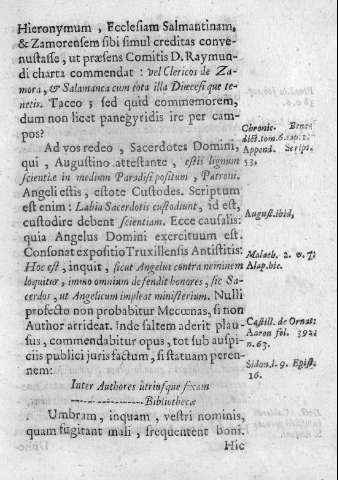 Hieronymum, Ecclesiam Salmantinam,
& Zamorensem sibi simul creditas conve-
nustasse, ut præsens Comitis D. Raymun-
di charta commendat: vel Clericos de Za-
mora, & Salamanca cum tota illa Diecesi que te-
netis. Taceo; sed quid commemorem,
dum non licet panegyridis ire per cam-
pos?
Ad vos redeo, Sacerdotes Domini,
qui, Augustino attestante, estis lignum
scientiæ in medium Paradisi positum, Patroni.
Angeli estis, estote Custodes. Scriptum
est enim: Labia Sacerdotis custodiunt, id est,
custodire debent scientiam. Ecce causalis:
quia Angelus Domini exercituum est.
Consonat expositio Truxillensis Antistitis:
Hoc est, inquit, sicut Angelus contra neminem
loquitur, immo omnium defendit honores, sic Sa-
cerdos, ut Angelicum impleat ministerium. Nulli
profecto non probabitur Mecœnas, si non
Author arrideat. Inde saltem aderit plau-
sus, commendabitur opus, tot sub auspi-
ciis publici juris factum, si statuam peren-
nem:
Inter Authores utrinsque fixam
Bibliothecæ
Umbram, inquam, vestri nominis,
quam fugitant mali, frequentent boni.
Hic
Chronic. Bened
dict. tom. 6. cap. 1.
Append. Script.
53.
August. ibid,
Malach. 2. v. 7.
Alap. hic.
Castill. de Ornat:
Aaron fol. 392.
n. 63.
Sidon. l. 9. Epist.
16.